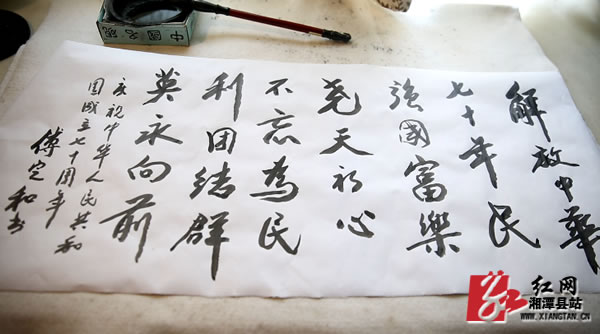 解放中華
七十年民
強國富樂
尧天初心
不忘為民
利团结群
英永向前
庆祝中华人民共和
國成立七十周年
傅定和书
中國名硯
红网
湘潭县站
WWW.XIANGTAN.CN